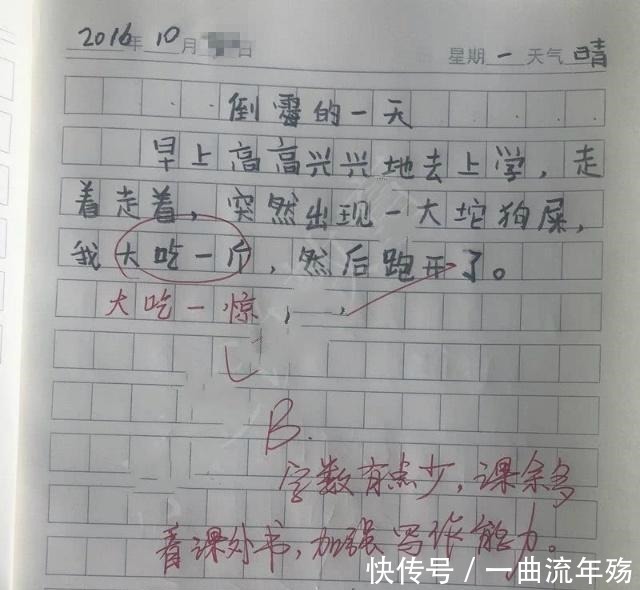 2016年10月 日
星期一 天气 晴
倒霉的一天
早上高高兴兴地去上学，走
着走着，突然出现一大坨狗屎，
我大吃一斤，然后跑开了。
大吃一惊，
B.
字数有点少，课余多
看课外书，加强写作能力。
快传号／一曲流年殇